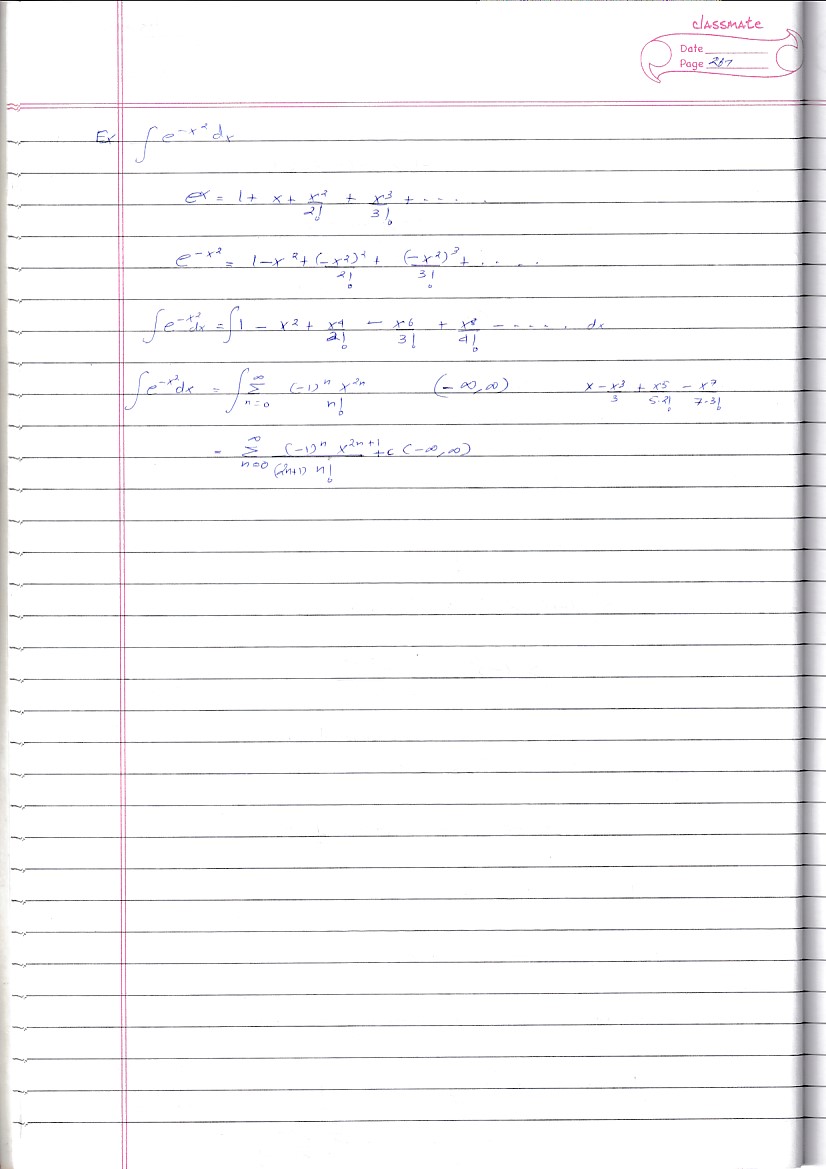 classmate
Date
Page 267
Ex ∫ e^{-x^2} dx
e^x = 1 + x + x^2/2! + x^3/3! + - - . .
e^{-x^2} = 1 - x^2 + (-x^2)^2/2! + (-x^2)^3/3! + . . . .
∫ e^{-x^2} dx = ∫ 1 - x^2 + x^4/2! - x^6/3! + x^8/4! - - - - . . dx
∫ e^{-x^2} dx = ∫ ∑_{n=0}^{∞} (-1)^n x^{2n}/n! (-∞, ∞) x - x^3/3 + x^5/5·2! - x^7/7·3!
= ∑_{n=0}^{∞} (-1)^n x^{2n+1}/(2n+1) n! + c (-∞, ∞)